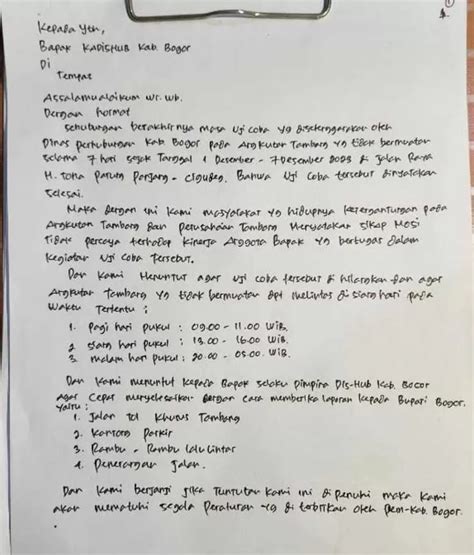 Kepada Yth,
Bapak KADISHUB Kab. Bogor
Di
Tempat
Assalamualaikum wr. wb.
Dengan hormat
sehubungan berakhirnya masa uji coba yg diselenggarakan oleh
Dinas perhubungan Kab. Bogor pada Angkutan Tambang yg tidak bermuatan
selama 7 hari sejak Tanggal 1 Desember - 7 Desember 2023 di Jalan Raya
H. Toha Parung Panjang - Cigudeg. Bahwa uji coba tersebut dinyatakan
selesai.
Maka dengan ini kami masyarakat yg hidupnya ketergantungan pada
Angkutan Tambang dan perusahaian Tambang Menyatakan sikap Mosi
tidak percaya terhadap kinerja Anggota Bapak yg bertugas dalam
kegiatan uji coba tersebut.
Dan kami Menuntut agar uji coba tersebut di hilangkan dan agar
Angkutan Tambang yg tidak bermuatan dpt melintas di siang hari pada
waktu Tertentu :
1. Pagi hari pukul : 09.00 - 11.00 WIB.
2. siang hari pukul : 13.00 - 16.00 WIB.
3. malam hari pukul : 20.00 - 05.00 WIB.
Dan kami menuntut kepada Bapak selaku Pimpina Dis-Hub Kab. Bogor
agar cepat menyelesaikan dengan cara memberika laporan kepada Bupati Bogor.
yaitu :
1. Jalan tol khusus Tambang
2. Kantong Parkir
3. Rambu - Rambu lalu lintar
4. Penerangan Jalan.
Dan kami berjanji jika Tuntutan kami ini di penuhi maka kami
akan mematuhi segala Peraturan yg di terbitkan oleh Pem-Kab. Bogor.